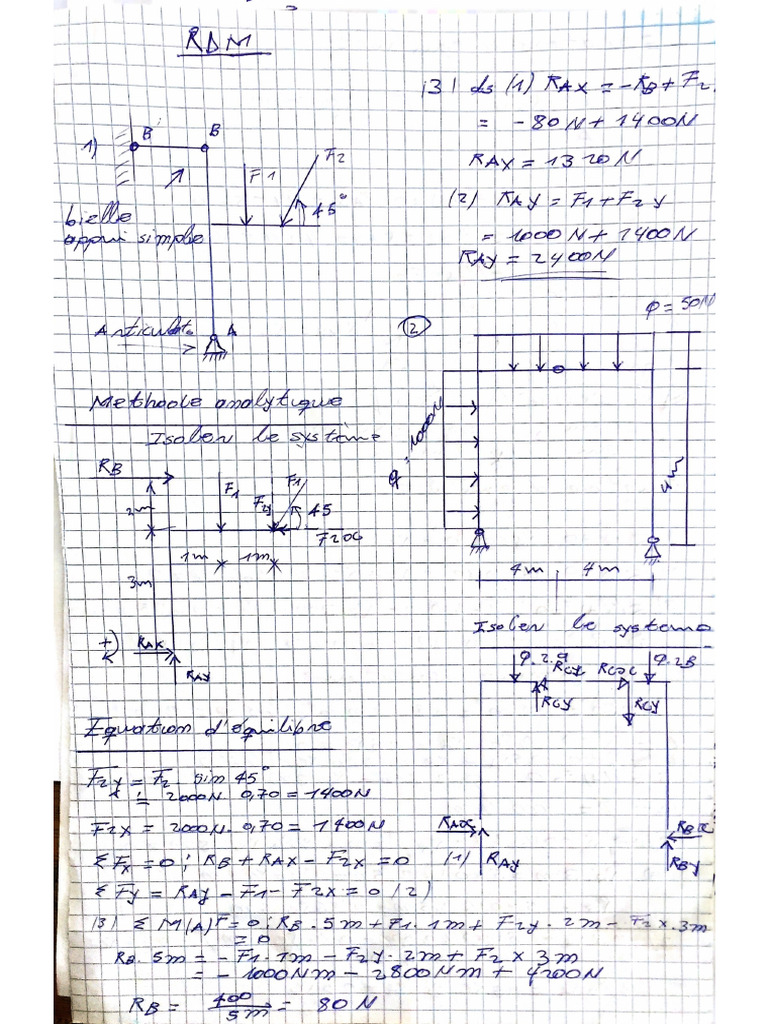 RDM
1)
B'
B
F1
F2
45°
bielle
appui simple
Articulat°
A
Methode analytique
Isoler le système
RB
F1
F2y
F1
45
F2x
2m
1m
1m
3m
+)
RAX
RAY
Equation d'équilibre
F2y = F2 sin 45°
= 2000N. 0,70 = 1400N
F2x = 2000N. 0,70 = 1400N
ΣFx = 0; RB + RAX - F2x = 0 (1)
ΣFy = RAY - F1 - F2x = 0 (2)
(3) ΣM(A)F = 0; RB . 5m + F1 . 1m + F2y . 2m - F2x . 3m
= 0
RB. 5m = - F1. 1m - F2y. 2m + F2 x 3m
= - 1000Nm - 2800Nm + 4200N
RB = 400/5m = 80 N
(3) ds (1) RAX = -RB + F2
= - 80N + 1400N
RAX = 1320N
(2) RAY = F1 + F2y
= 1000N + 1400N
RAY = 2400N
(2)
φ = 50N
q = 1000N
4m
4m
4m
Isoler le systeme
RCy
RCy
RAx
RAY
RBx
RBY